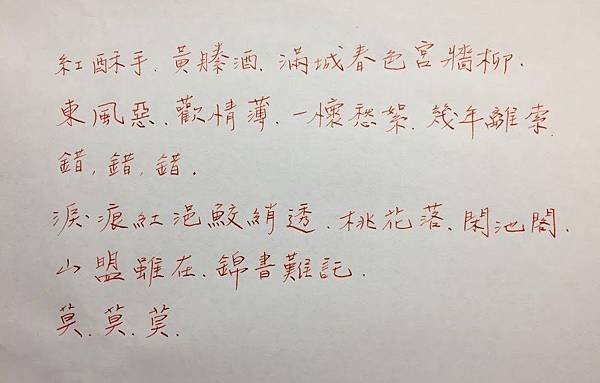 紅酥手.黃縢酒.滿城春色宮牆柳.
東風惡.歡情薄.一懷愁絮.幾年離索.
錯,錯,錯.
淚痕紅浥鮫綃透.桃花落.閑池閣.
山盟雖在.錦書難託.
莫.莫.莫.